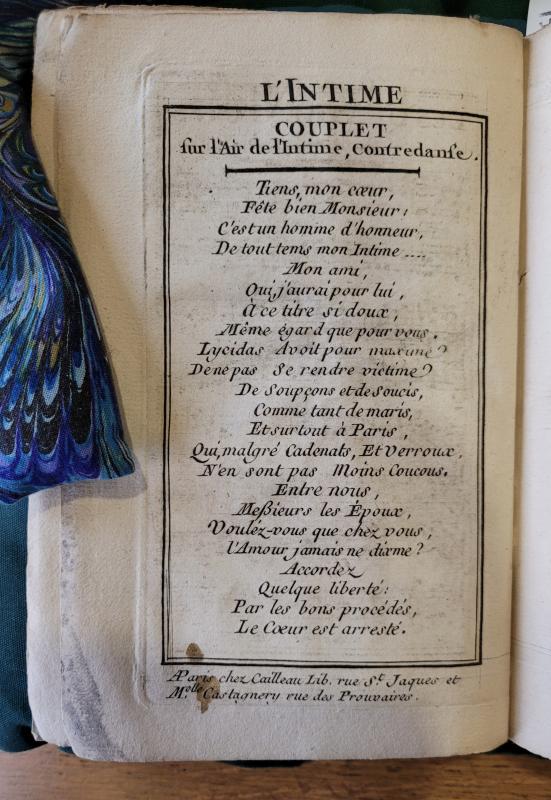 L'INTIME
COUPLET
sur l'Air de l'Intime, Contredanse.
Tiens, mon cœur,
Fête bien Monsieur:
C'est un homme d'honneur,
De tout tems mon Intime ....
Mon ami,
Oui, j'aurai pour lui,
À ce titre si doux,
Même égard que pour vous.
Lycidas Avoit pour maxime?
De ne pas Se rendre victime?
De Soupçons et de Soucis,
Comme tant de maris,
Et surtout à Paris,
Qui, malgré Cadenats, Et Verroux,
N'en sont pas Moins Coucous.
Entre nous,
Meßieurs les Époux,
Vouléz-vous que chez vous,
l'Amour jamais ne dixme?
Accordez
Quelque liberté:
Par les bons procédés,
Le Cœur est arresté.
A Paris chez Cailleau Lib. rue St. Jaques et
Melle Castagnery rue des Prouvaires.